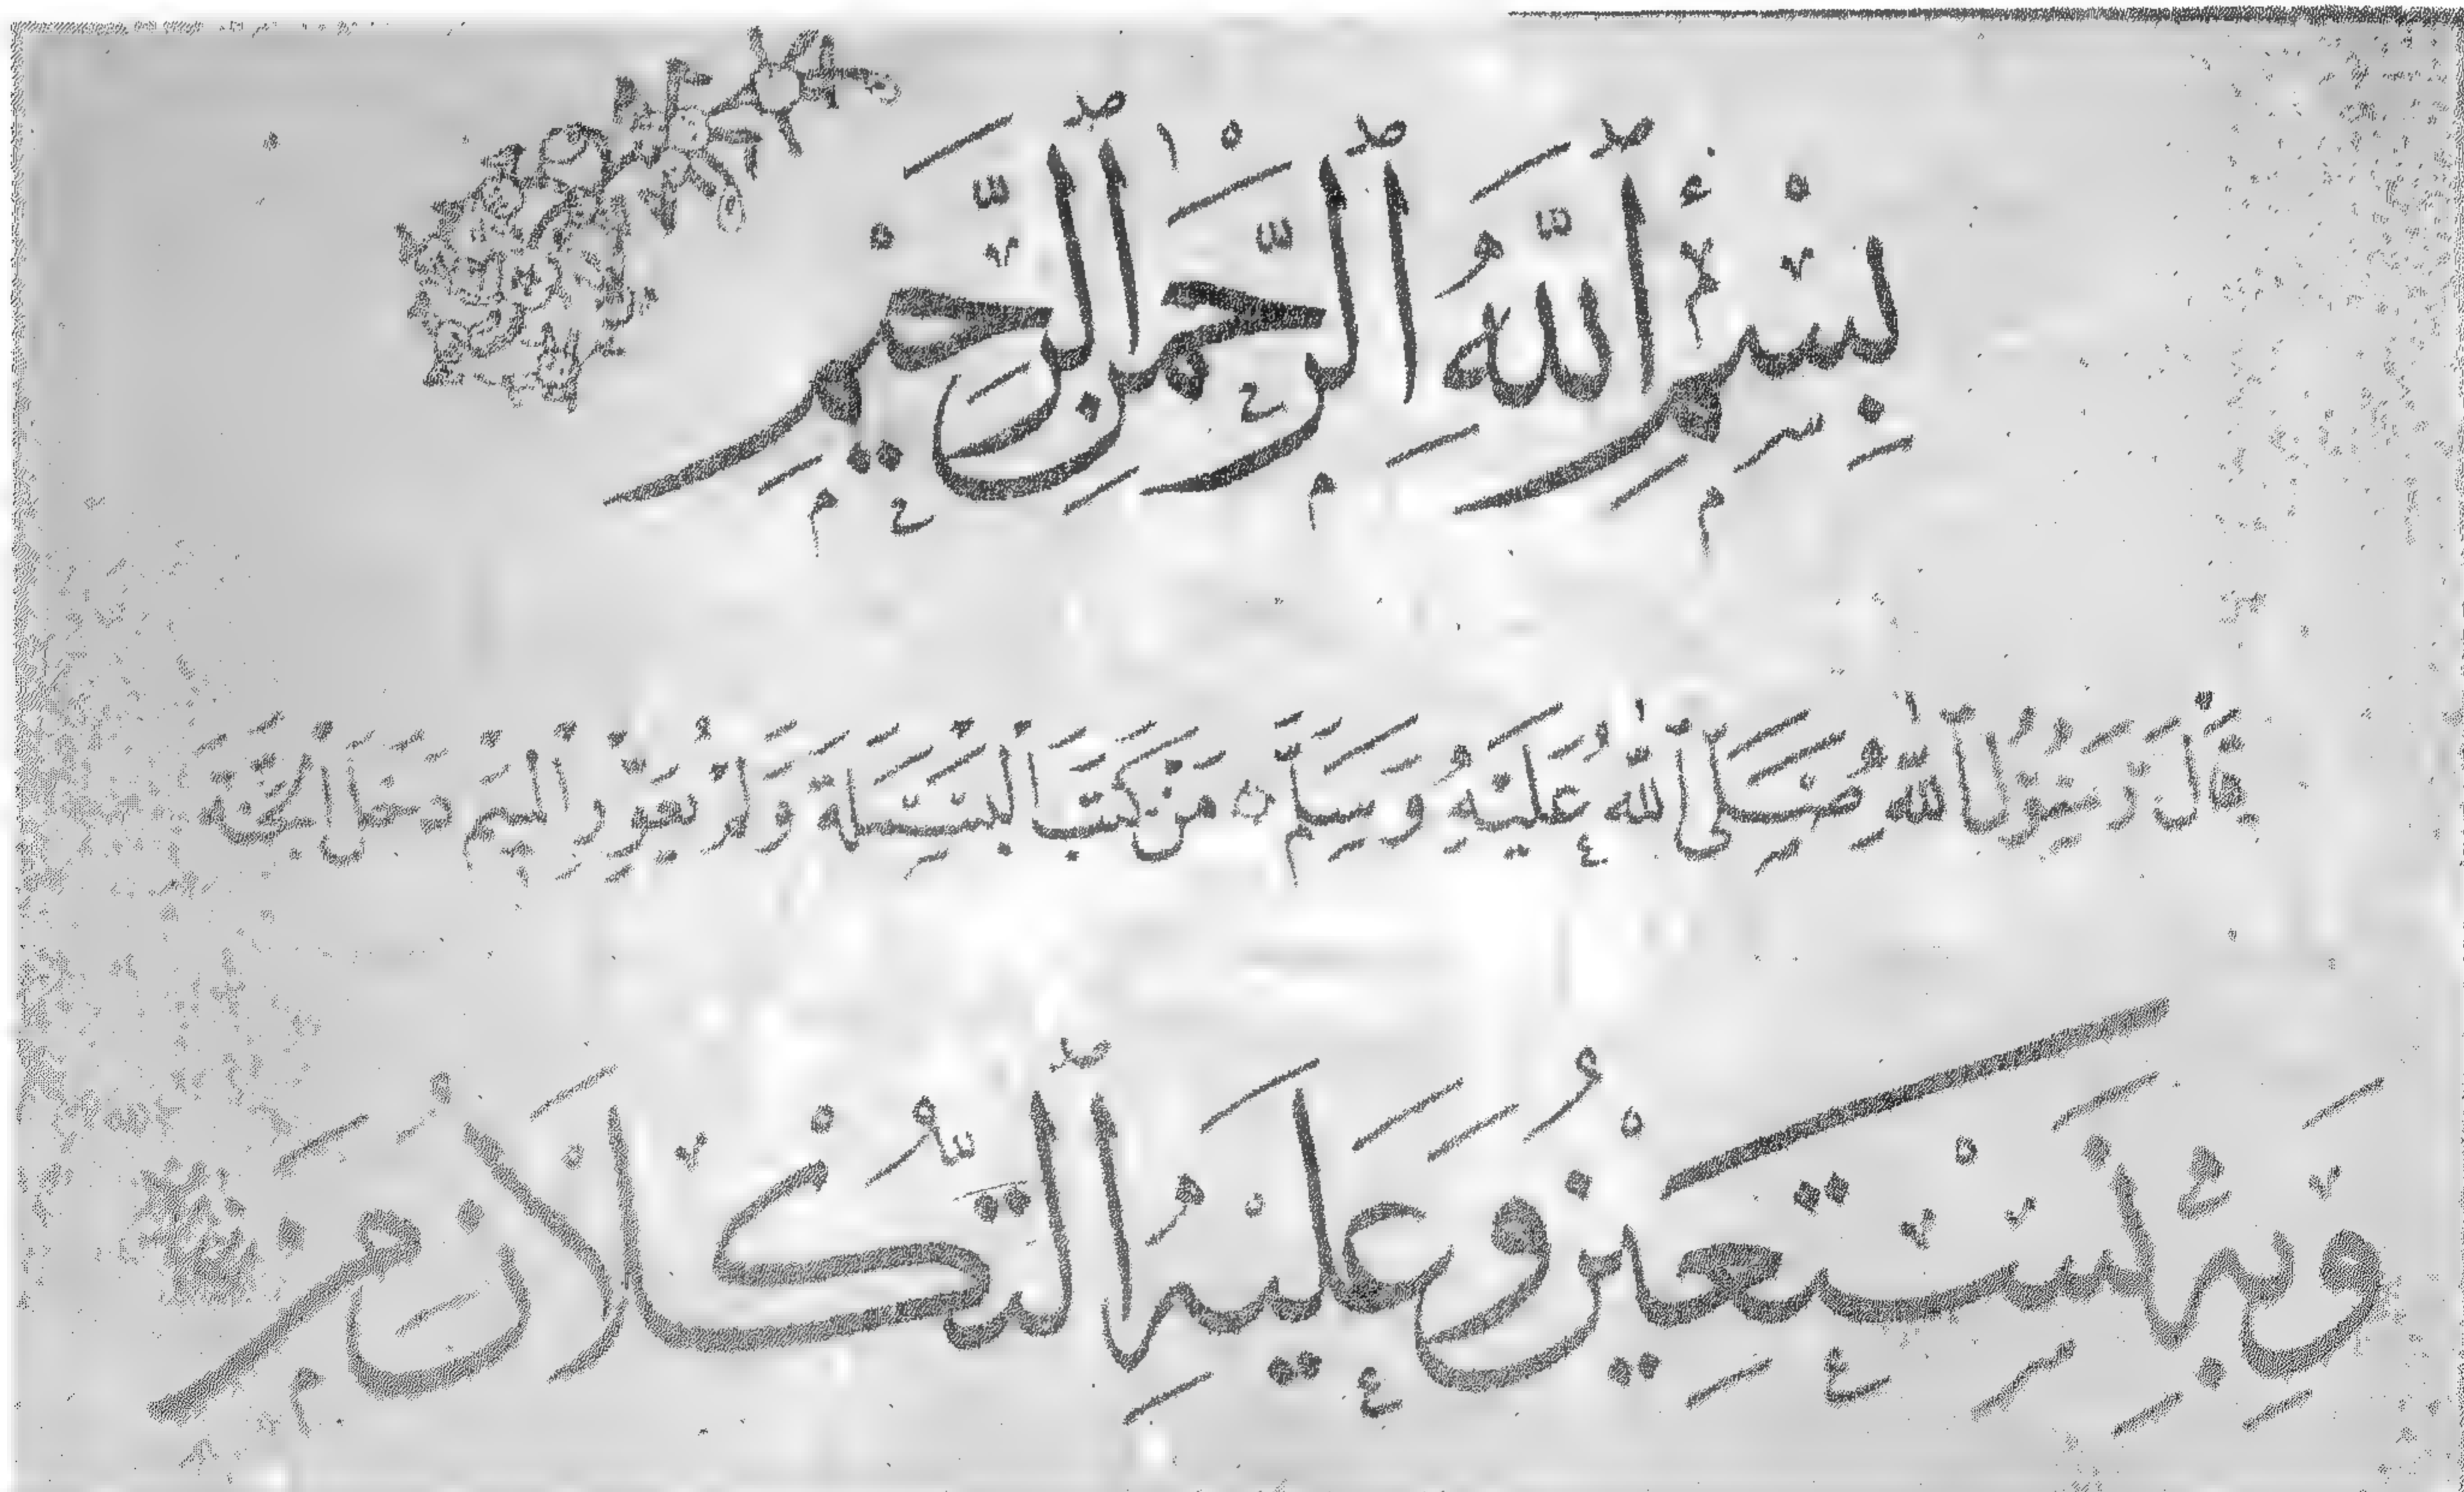 بِسْمِ ٱللَّهِ ٱلرَّحْمَنِ ٱلرَّحِيْمِ
قَالَ رَسُوْلُ ٱللَّهِ صَلَّى ٱللَّهُ عَلَيْهِ وَسَلَّمَ مَنْ كَتَبَ ٱلْبَسْمَلَةَ وَلَمْ يُعَوِّرِ ٱلْمِيْمَ دَخَلَ ٱلْجَنَّةَ
وَبِهِ نَسْتَعِيْنُ وَعَلَيْهِ ٱلتُّكْلَانُ